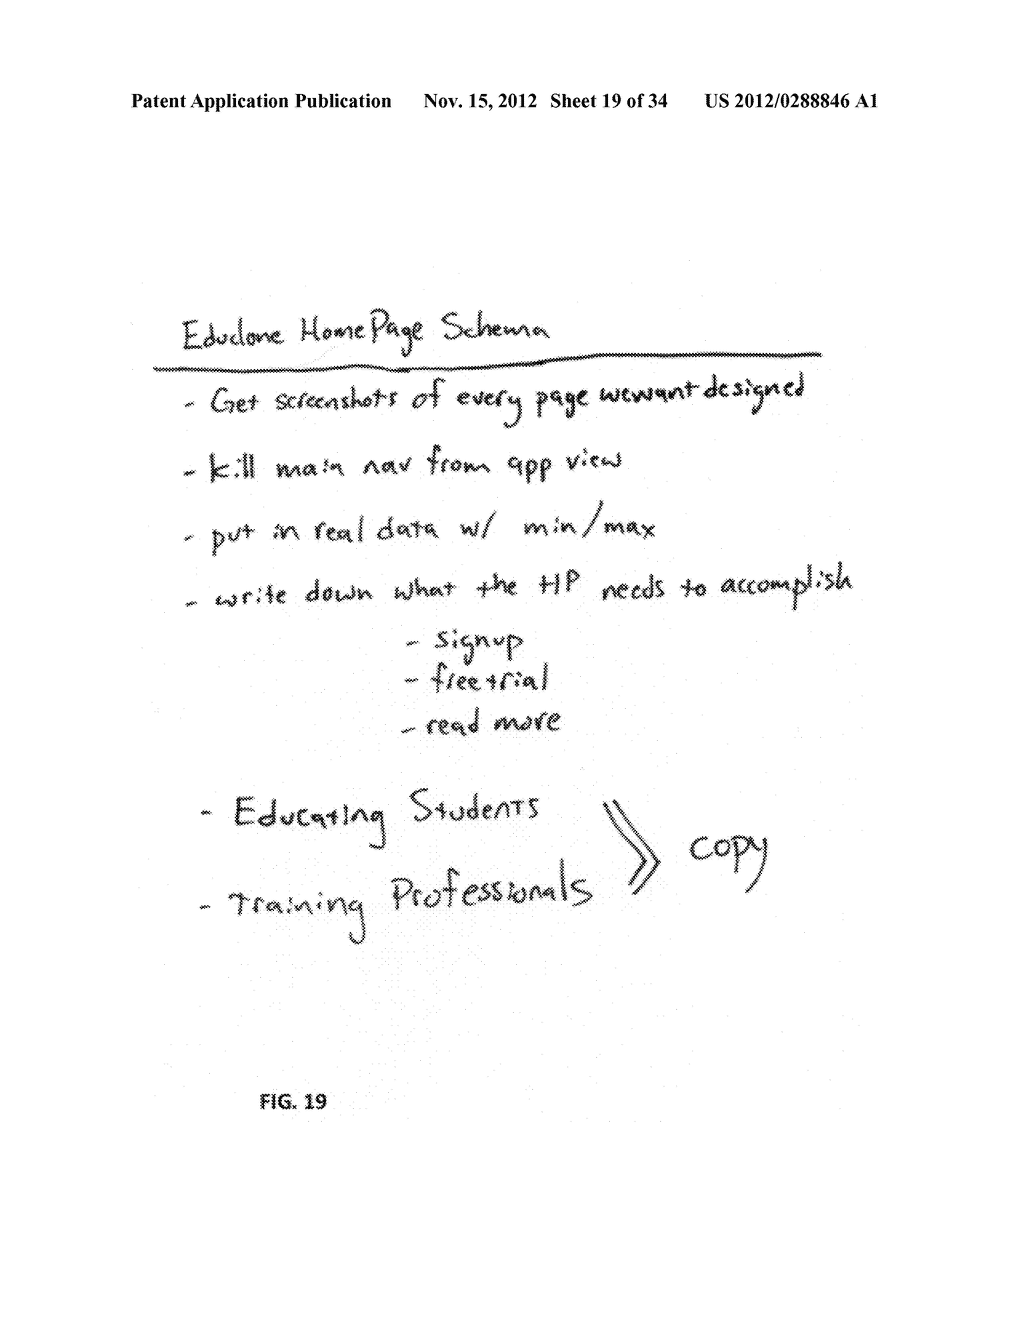 Patent Application Publication Nov. 15, 2012 Sheet 19 of 34 US 2012/0288846 A1
Educlone HomePage Schema
- Get screenshots of every page we want designed
- kill main nav from app view
- put in real data w/ min/max
- write down what the HP needs to accomplish
- signup
- free trial
- read more
- Educating Students
- Training Professionals
copy
FIG. 19